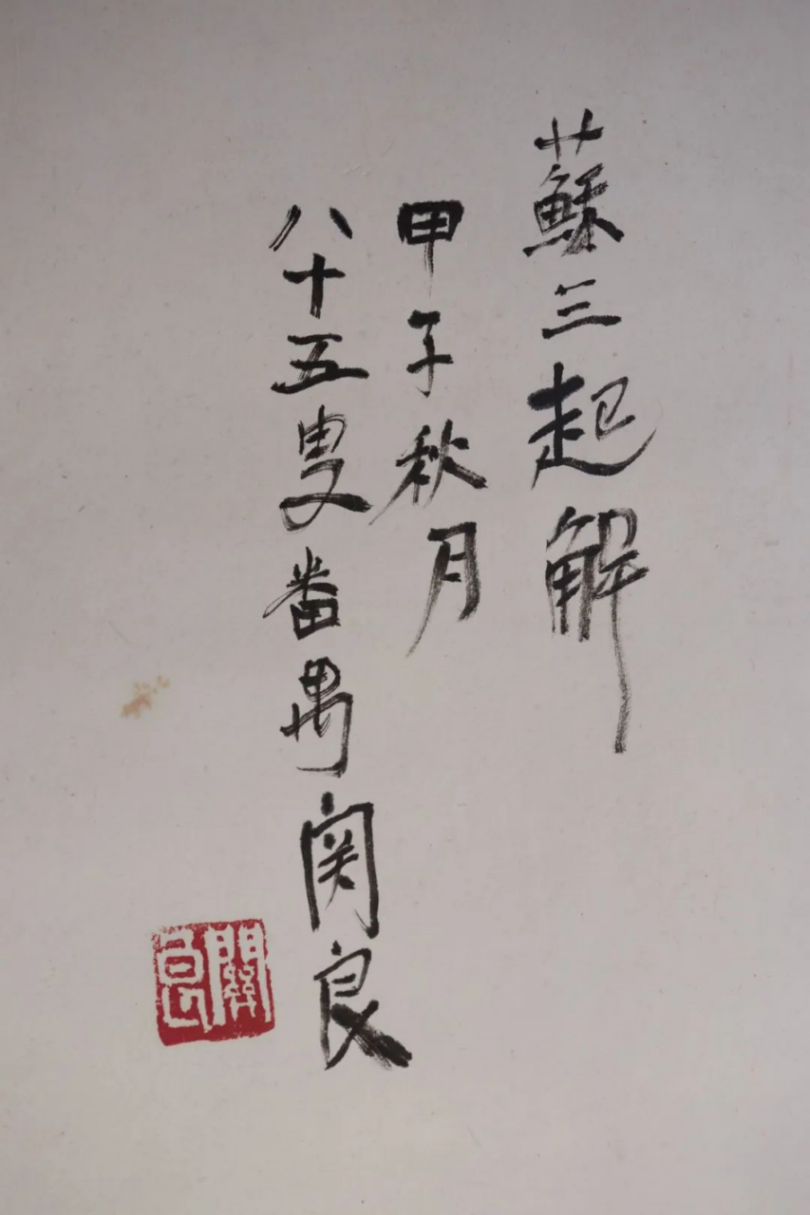 蘇三起解
甲子秋月
八十五叟番禺関良
關良